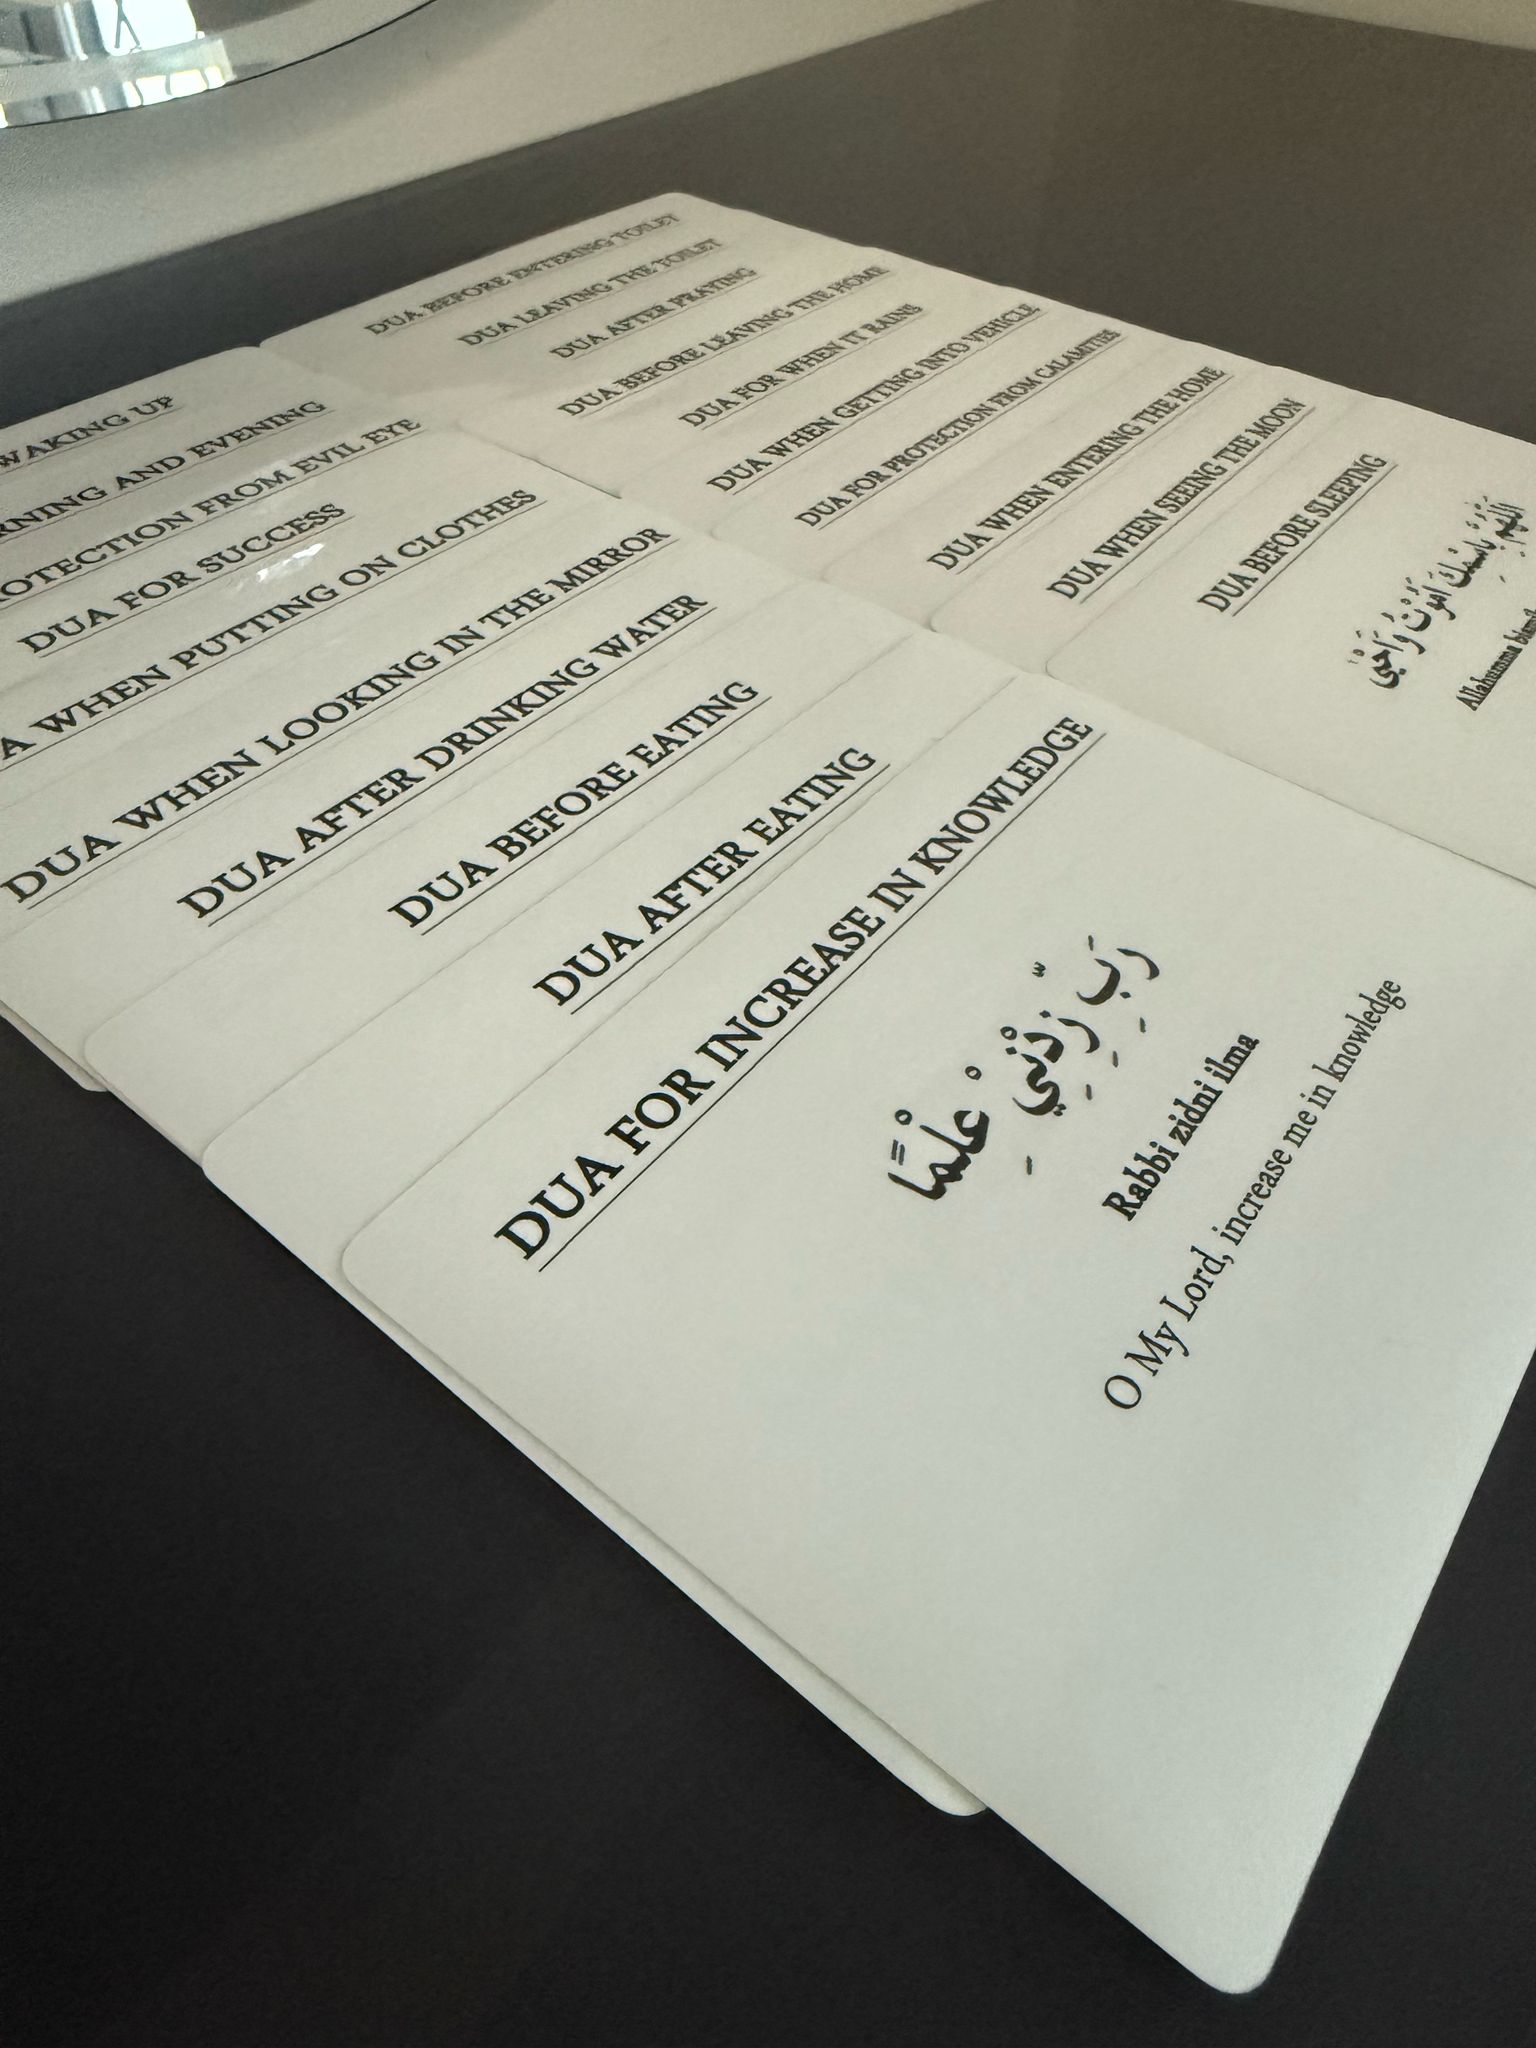 WAKING UP
RNING AND EVENING
OTECTION FROM EVIL EYE
DUA FOR SUCCESS
A WHEN PUTTING ON CLOTHES
DUA WHEN LOOKING IN THE MIRROR
DUA AFTER DRINKING WATER
DUA BEFORE EATING
DUA AFTER EATING
DUA FOR INCREASE IN KNOWLEDGE
رَبِّ زِدْنِي عْلْمًا
Rabbi zidni ilma
O My Lord, increase me in knowledge
DUA BEFORE ENTERING TOILET
DUA LEAVING THE TOILET
DUA AFTER PRAYING
DUA BEFORE LEAVING THE HOME
DUA FOR WHEN IT RAINS
DUA WHEN GETTING INTO VEHICLE
DUA FOR PROTECTION FROM CALAMITIES
DUA WHEN ENTERING THE HOME
DUA WHEN SEEING THE MOON
DUA BEFORE SLEEPING
اللَّهُمَّ بِاسْمِكَ أَمُوْتُ وَأَحْيَى
Allahumma